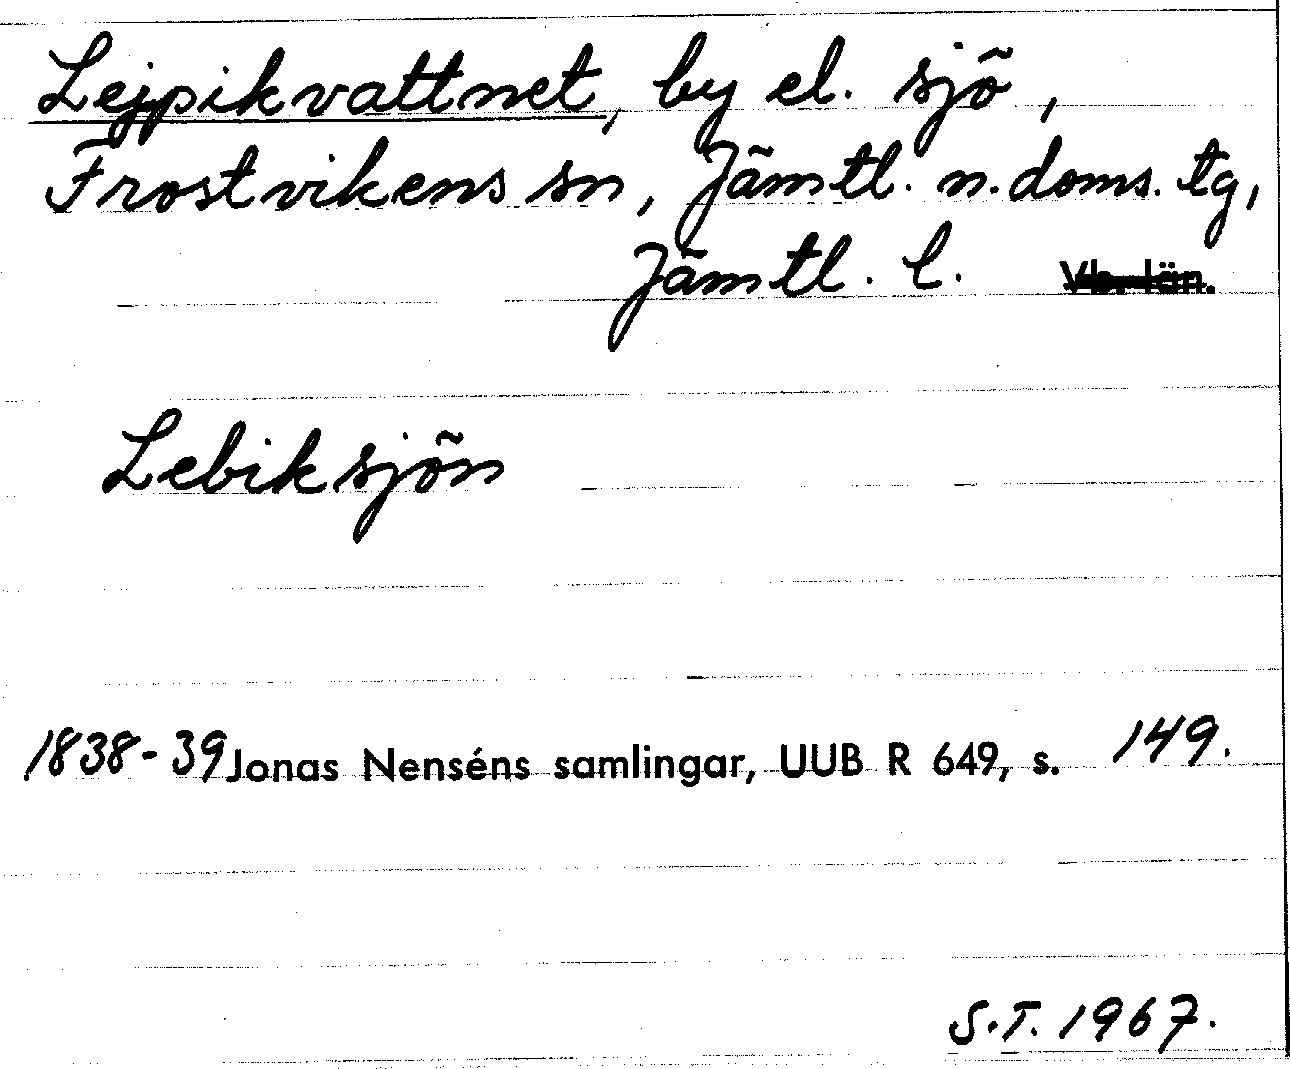 Lejpikvattnet, by el. sjö,
Frostvikens sn, Jämtl. n. doms. tg,
Jämtl. l. Vb. län.
Lebiksjön
1838-39 Jonas Nenséns samlingar, UUB R 649, s. 149.
S.T. 1967.